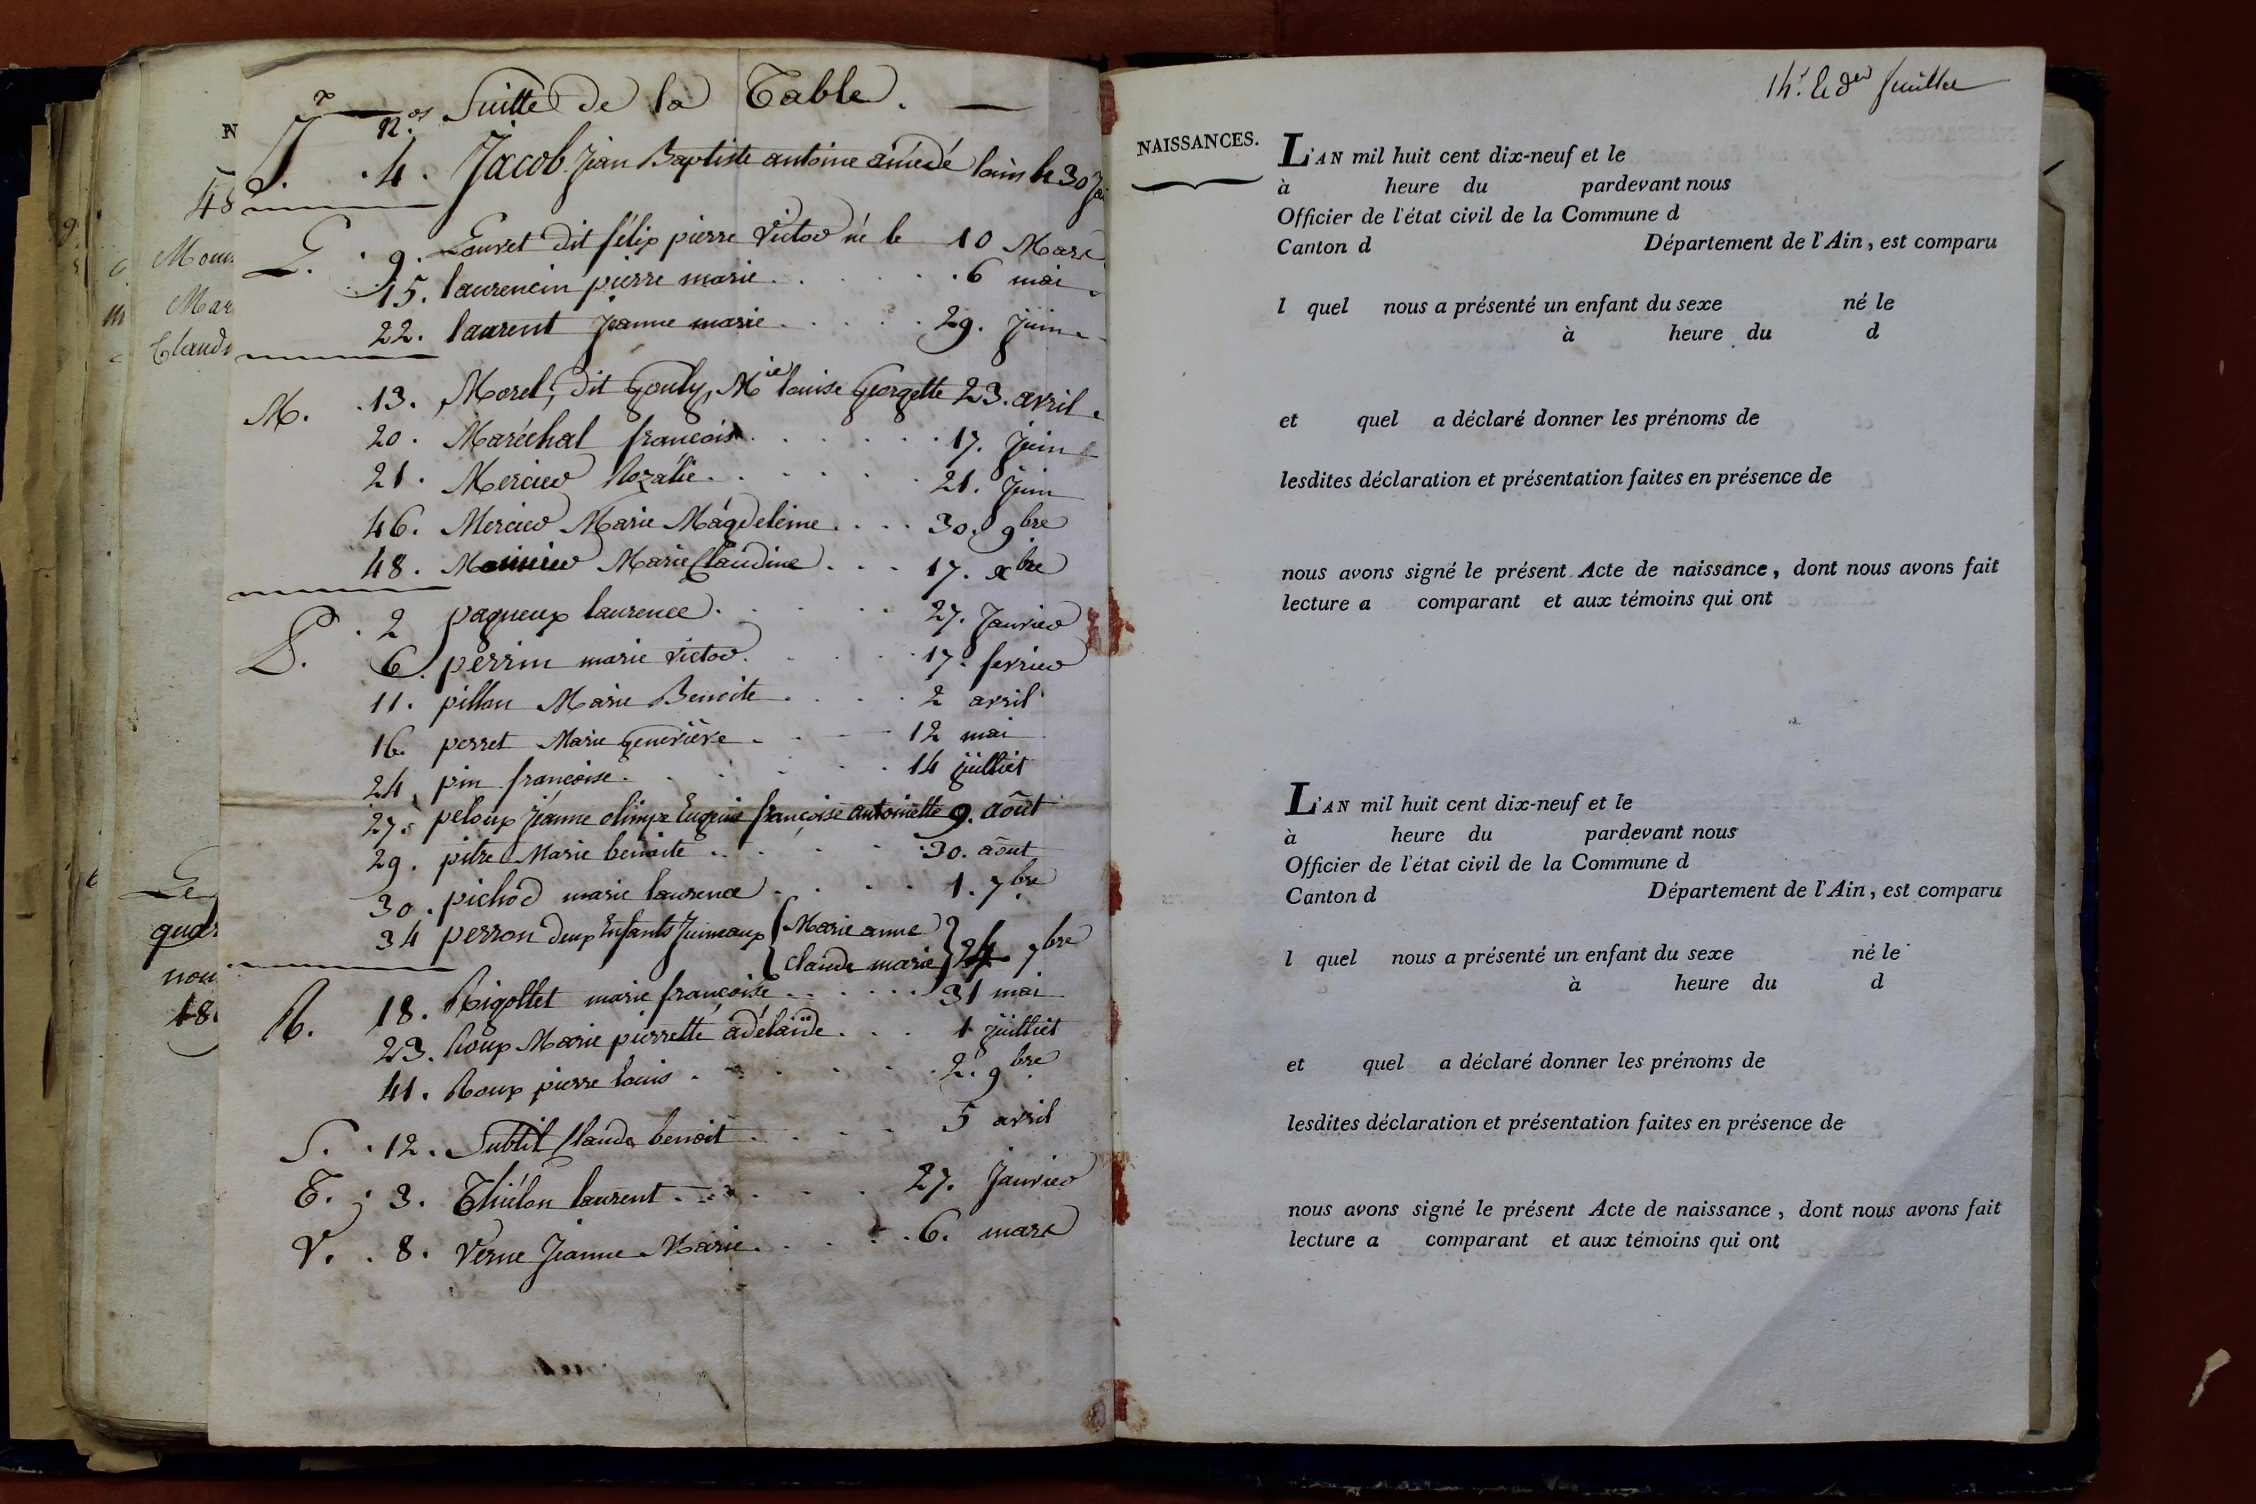 Suitte de la Table.
J. n.os 4. Jacob Jean Baptiste antoine amédé louis le 30
L. 9. Louvet dit félix pierre victor né le 10 Mars
15. laurencin pierre marie . . . . 6 mai
22. laurent Jeanne marie . . . . 29. Juin
M. 13. Morel, dit Gouly, Mie louise Georgette 23. avril
20. Maréchal francois . . . . 17. Juin
21. Mercier Rozalie . . . . 21. Juin
46. Mercier Marie Magdeleine . . . . 30. 9bre
48. Marie Claudine . . . 17. xbre
P. 2 paqueux laurence . . . . 27. Janvier
6. perrin marie victor . . . . 17. fevrier
11. pillon Marie Benoite . . . . 2 avril
16. perret Marie Geneviève . . . . 12 mai
24 pin francoise . . . . 14 juilliet
27. peloux jéanne olimpe Eugenie françoise antoinette 9. aôut
29. pitre Marie benoite . . . . 30. aôut
30. pichod marie laurence . . . . 1. 7bre
34 perron deux Enfants Jumeaux { Marie anne
claude marie } 24 7bre
R. 18. Rigollet marie françoise . . . . 31 mai
23. Roux Marie pierrette adélaïde . . . 1 juilliet
41. Roux pierre louis . . . . 2. 9bre
S. 12. Subtil Claude benoit . . . . 5 avril
T. 3. Thiélon laurent . . . . 27. Janvier
V. 8. Verne Jeanne Marie . . . . 6. mars
N
48
Mar
Claud
Le
quar
nou
18
14e. & der feuillet
NAISSANCES.
L'AN mil huit cent dix-neuf et le
à heure du pardevant nous
Officier de l'état civil de la Commune d
Canton d Département de l'Ain, est comparu
l quel nous a présenté un enfant du sexe né le
à heure du d
et quel a déclaré donner les prénoms de
lesdites déclaration et présentation faites en présence de
nous avons signé le présent Acte de naissance, dont nous avons fait
lecture a comparant et aux témoins qui ont
L'AN mil huit cent dix-neuf et le
à heure du pardevant nous
Officier de l'état civil de la Commune d
Canton d Département de l'Ain, est comparu
l quel nous a présenté un enfant du sexe né le
à heure du d
et quel a déclaré donner les prénoms de
lesdites déclaration et présentation faites en présence de
nous avons signé le présent Acte de naissance, dont nous avons fait
lecture a comparant et aux témoins qui ont